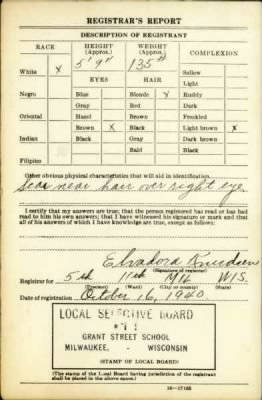 REGISTRAR'S REPORT
DESCRIPTION OF REGISTRANT
RACE HEIGHT (Approx.) WEIGHT (Approx.) COMPLEXION
5' 9" 135
White X Sallow
EYES HAIR Light
Negro Blue Blonde X Ruddy
Gray Red Dark
Oriental Hazel Brown Freckled
Brown X Black Light brown X
Indian Black Gray Dark brown
Bald Black
Filipino
Other obvious physical characteristics that will aid in identification.
Scar near hair over right eye.
I certify that my answers are true; that the person registered has read or has had
read to him his own answers; that I have witnessed his signature or mark and that
all of his answers of which I have knowledge are true, except as follows:
Elvadora Knudsen
(Signature of registrar)
Registrar for 5th 11th Mil WIS.
(Precinct) (Ward) (City or county) (State)
Date of registration October 16, 1940
LOCAL SELECTIVE BOARD
# 11
GRANT STREET SCHOOL
MILWAUKEE, - WISCONSIN
(STAMP OF LOCAL BOARD)
(The stamp of the Local Board having jurisdiction of the registrant
shall be placed in the above space.)